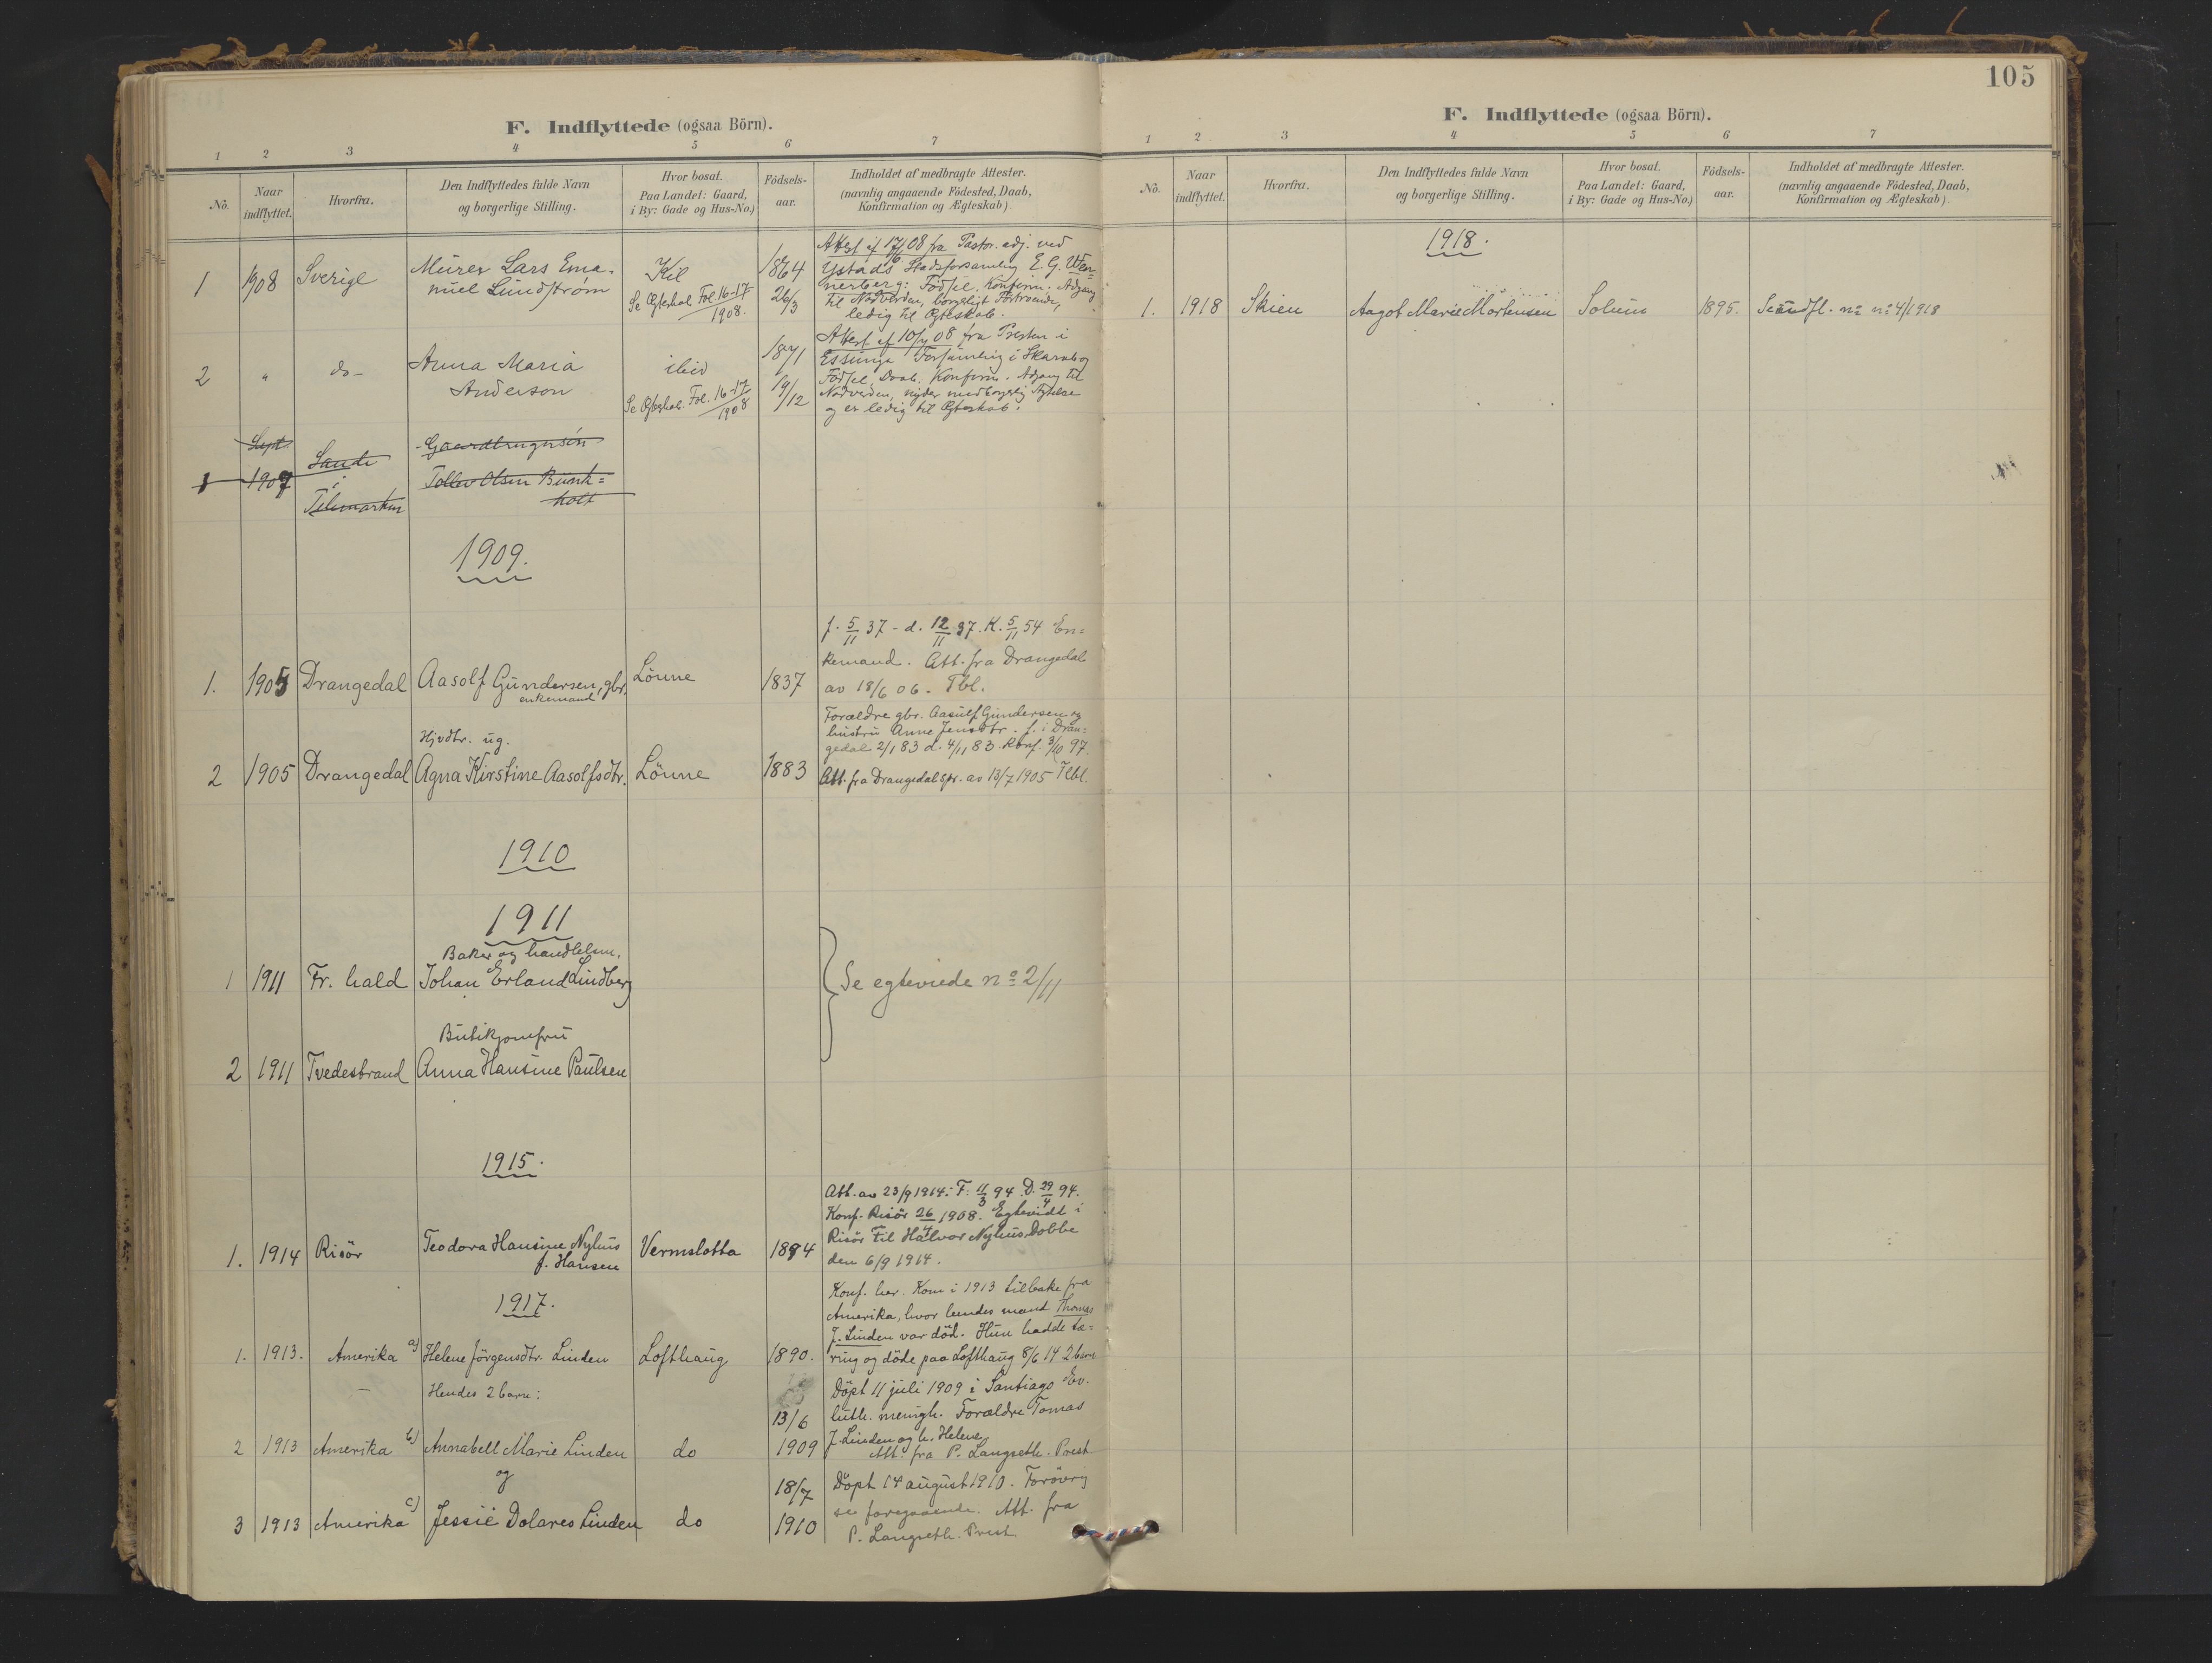 F. Indflyttede (ogsaa Börn).
1 2 3 4 5 6 7
No.
Naar indflyttet.
Hvorfra.
Den Indflyttedes fulde Navn og borgerlige Stilling.
Hvor bosat. Paa Landet: Gaard, i By: Gade og Hus-No.)
Födsels-aar.
Indholdet af medbragte Attester. (navnlig angaaende Födested, Daab, Konfirmation og Ægteskab)
1 1908 Sverige Murer Lars Ema-
nuel Lundstrøm
Kil
Se Ægteskab Fol. 16-17
1908.
1864
26/3
Attest af 17/6 08 fra Pastor. adj. ved
Ystads Stadsforsamling E. G. Wen-
nerberg: Födsel, Konfirm. Adgang
til Nadverden, borgerligt Förtroende,
ledig til Ægteskab.
2 " do- Anna Maria
Anderson
ibid
Se Ægteskab. Fol. 16-17
1908
1871
19/12
Attest af 10/7 08 fra Presten i
Essunga Forsamling i Skaraborg
Födsel, Daab, Konfirm. Adgang til
Nadverden, nyder medborgerlig Agtelse
og er ledig til Ægteskab.
1 Sept 1907 Sande
i
Telemarken
Gaardbrugersön
Tollev Olsen Bunk=
holt
1909.
f. 5/11 37 - d. 12/11 37. K. 5/11 54 En=
kemand. Att. fra Drangedal
av 18/6 06. Tbl.
1. 1905 Drangedal Aasolf Gundersen, gbr.
enkemand
Lönne 1837
Forældre gbr. Aasulf Gundersen og
hustru Anne Jensdtr. f. i Dran=
gedal 2/1 83 d. 4/11 83. Konf. 3/10 97.
Att. fra Drangedal spr. av 13/7 1905 Tlbl.
Hjvdtr. ug.
2 1905 Drangedal Agna Kirstine Aasolfsdtr. Lönne 1883
1910
1911
Baker og handlelsm.
1 1911 Fr. hald Johan Erland Lindberg
Se egteviede no 2/11
Butikjomfru
2 1911 Tvedestrand Anna Hansine Paulsen
1915.
Att. av 23/9 1914: F. 11/3 94 D. 29/4 94.
Konf. Risör 26/4 1908. Egteviedt i
Risör til Halvor Nyhus Dobbe
den 6/9 1914.
1. 1914 Risör Teodora Hansine Nyhus
f. Hansen
Vermslotta 1894
1917.
Konf. her. Kom i 1913 tilbake fra
Amerika, hvor hendes mand Thomas
J. Linden var död. Hun hadde tæ=
ring og döde paa Lofthaug 8/6 14 2 barn
1. 1913. Amerika a) Helene Jörgensdtr. Linden Lofthaug 1890.
— Hendes 2 barn:
Döpt 11 juli 1909 i Santiago Ev.
luth. menigh. Forældre Tomas
J. Linden og h. Helene
Att. fra P. Langseth. Prest
2 1913 Amerika b) Annabell Marie Linden do 13/6
1909
og
Döpt 14 august 1910. Forövrig
se foregaaende. Att. fra
P. Langseth. Prest
3 1913 Amerika c) Jessie Dolares Linden do 18/7
1910
105
F. Indflyttede (ogsaa Börn).
1 2 3 4 5 6 7
No.
Naar indflyttet.
Hvorfra.
Den Indflyttedes fulde Navn og borgerlige Stilling.
Hvor bosat. Paa Landet: Gaard, i By: Gade og Hus-No.)
Födsels-aar.
Indholdet af medbragte Attester. (navnlig angaaende Födested, Daab, Konfirmation og Ægteskab)
1918.
1. 1918 Skien Aagot Marie Mortensen Solum 1895. no 4/1918